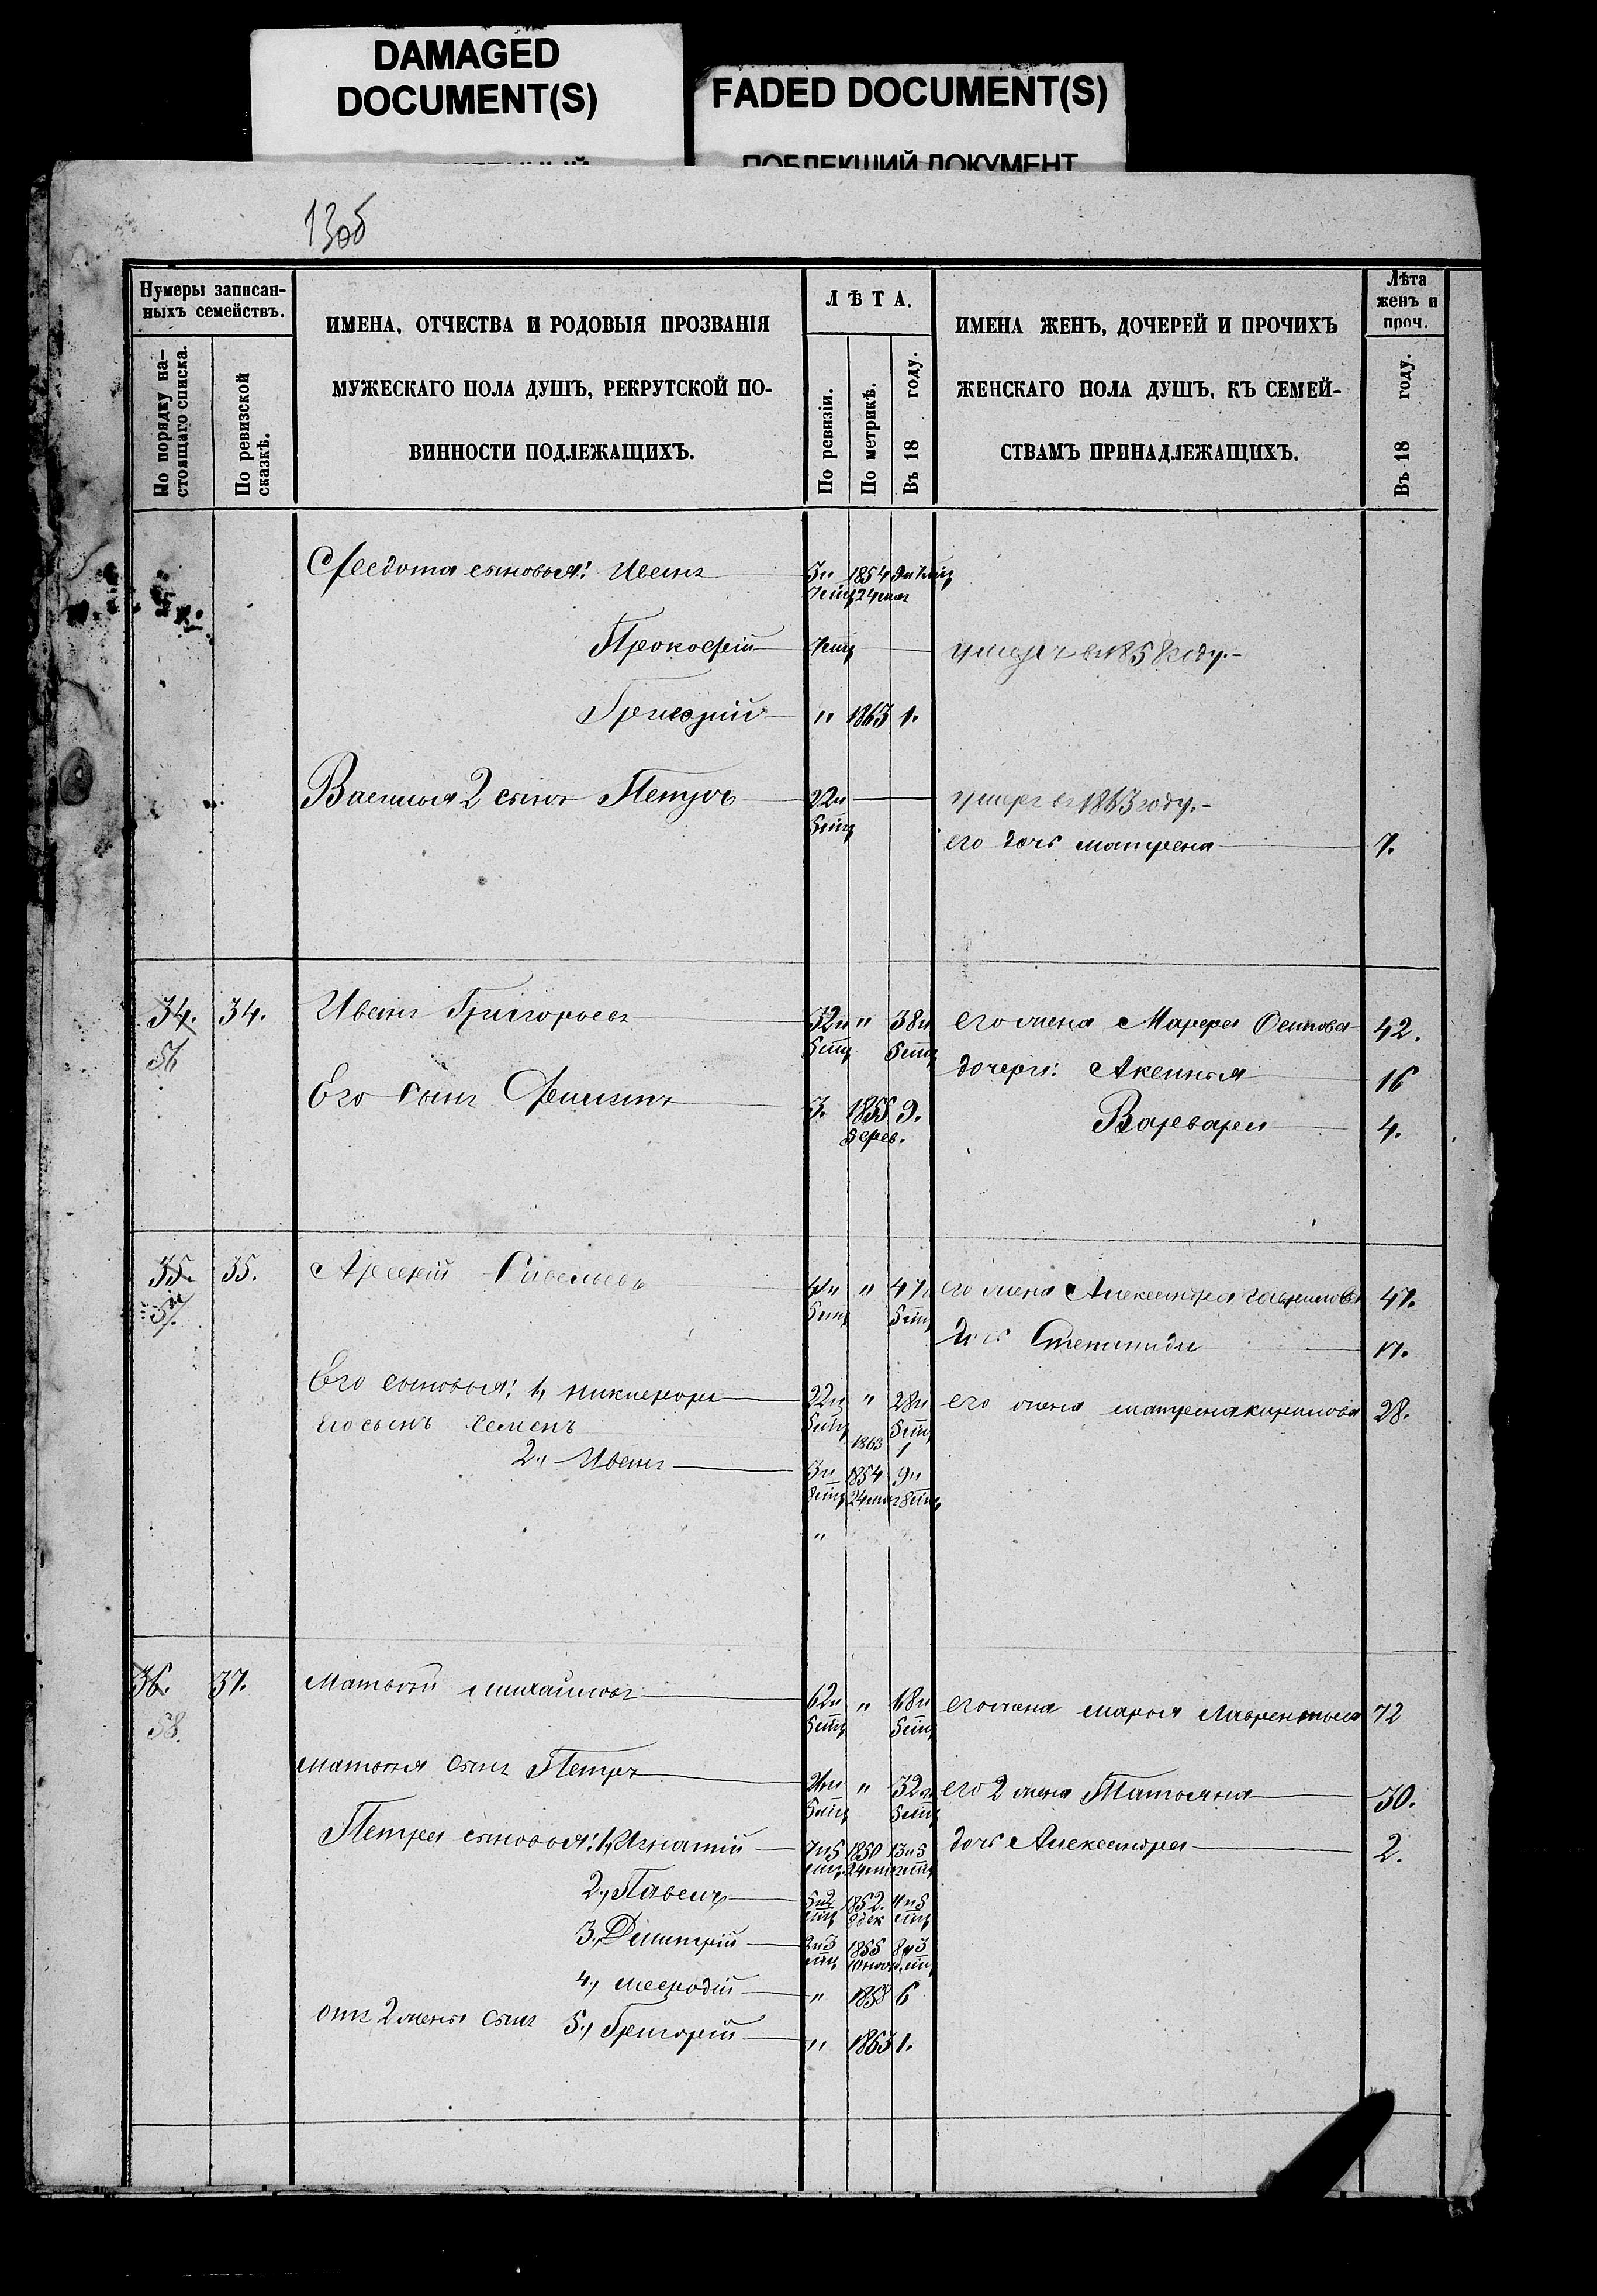 DAMAGED
DOCUMENT(S)
FADED DOCUMENT(S)
ПОБЛЕКШИЙ ДОКУМЕНТ
13об
Нумеры записан-
ныхъ семействъ.
По порядку на-
стоящаго списка.
По ревизской
сказкѣ.
ИМЕНА, ОТЧЕСТВА И РОДОВЫЯ ПРОЗВАНІЯ
МУЖЕСКАГО ПОЛА ДУШЪ, РЕКРУТСКОЙ ПО-
ВИННОСТИ ПОДЛЕЖАЩИХЪ.
ЛѢТА.
По ревизіи.
По метрикѣ.
Въ 18 году.
ИМЕНА ЖЕНЪ, ДОЧЕРЕЙ И ПРОЧИХЪ
ЖЕНСКАГО ПОЛА ДУШЪ, КЪ СЕМЕЙ-
СТВАМЪ ПРИНАДЛЕЖАЩИХЪ.
Лѣта
женъ и
проч.
Въ 18 году.
Федота сыновья: Иванъ 3и 1854 9и
7мц 24
Прокофій 7мц умеръ въ 1858 году.-
Григорій " 1863 1.
Василья 2 сынъ Петръ 22и умеръ въ 1863 году.-
5мц
его дочь матрена 7.
34. 34. Иванъ Григорьевъ 32и " 38и его жена Марфа Осипова 42.
56 5мц 5мц
дочери: Аксинья 16
Его сынъ Филипъ 3. 1855 9. Варвара 4.
5 фев.
35. 35. Арсений Савельевъ 41и " 47и его жена Александра гаврилова 47.
57. 5мц 5мц
дочь Степанида 17.
Его сыновья: 1, никифоръ 22и " 28и его жена матрена кирилова 28.
его сынъ Семенъ 5мц 1863 5мц 1
2., Иванъ 3и 1854 9и
8мц 24 8мц
"
36. 37. Матвѣй михайловъ 62и " 68и его жена марья Лаврентьева 72
58. 5мц 5мц
матвѣя сынъ Петръ 26и " 32и его 2 жена Татьяна 30.
5мц 5мц
Петра сыновья: 1, Игнатій 7и5 1850 13и5 дочь Александра 2.
мц 24 мц
2., Павелъ 5и2 1852. 11и5
мц 9 дек мц
3., Дмитрій 2и3 1855 8и3
мц 10 мц
4., мефодій " 1858 6
отъ 2 жены сынъ 5., Григорій " 1863 1.